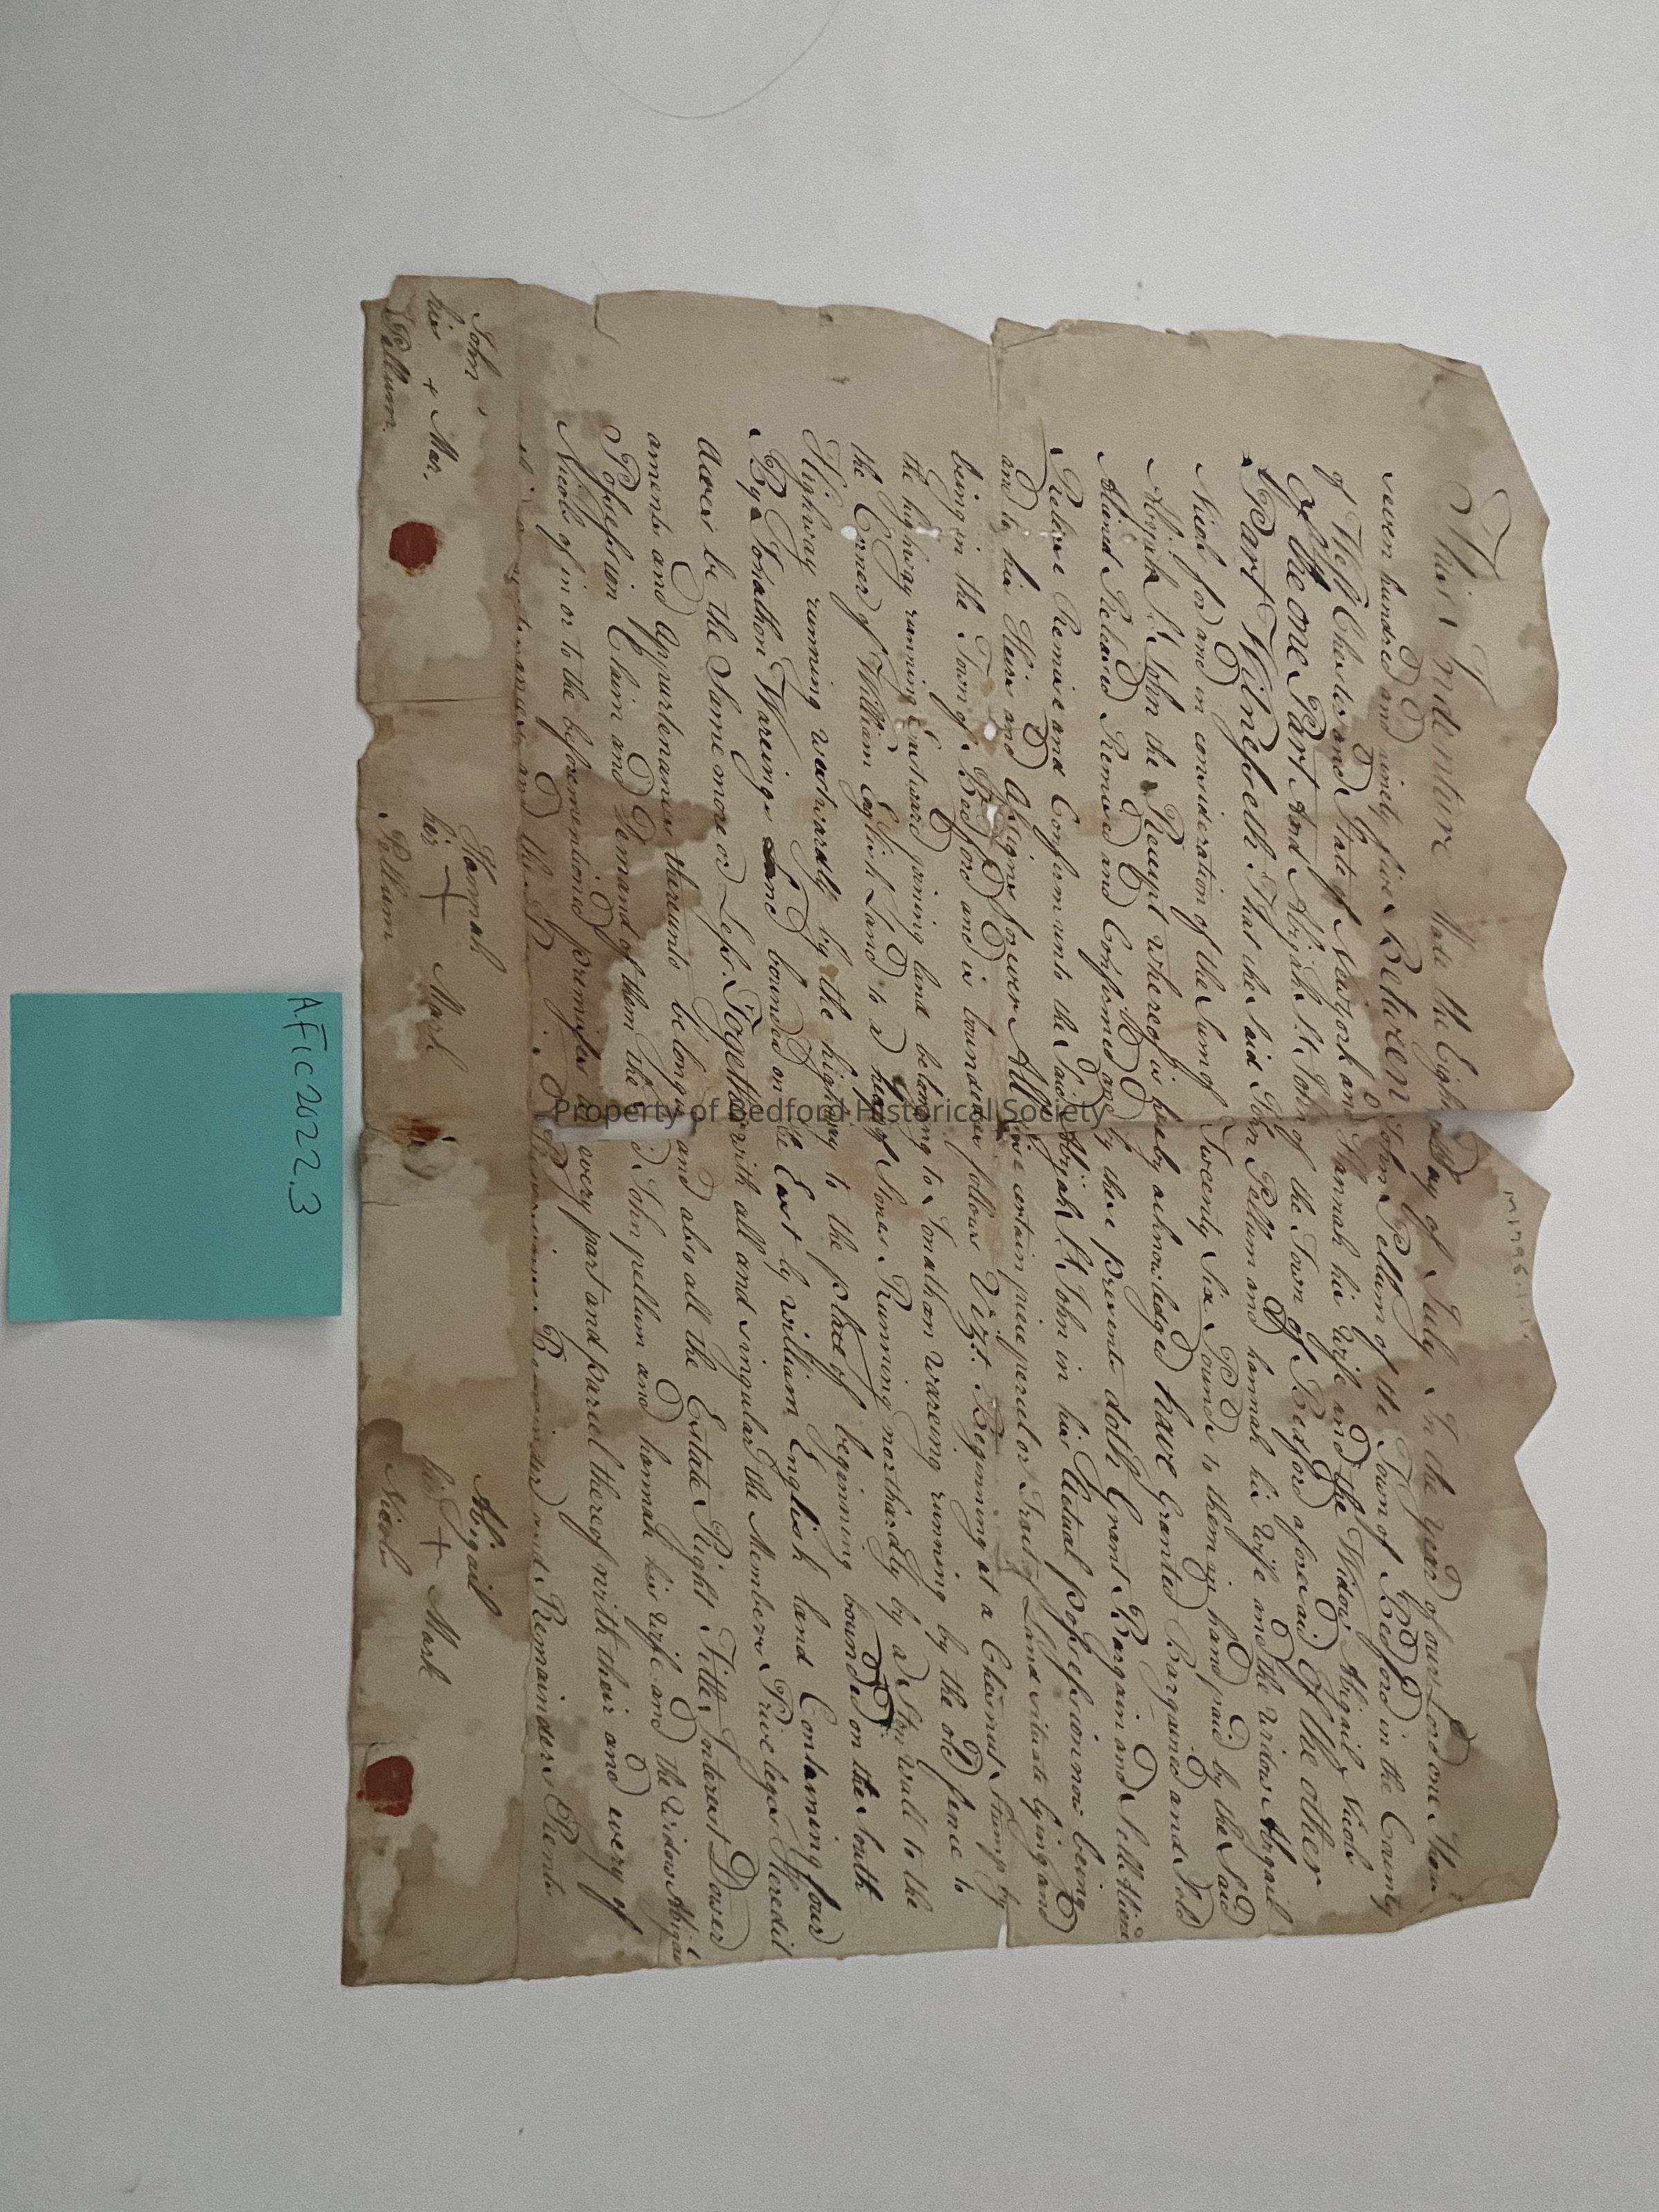 M1796.1.1.
This Indenture Made the Eighth Day of July In the year of our Lord one Thou
seven hundred and ninety five Between John Pellum of the Town of Bedford in the County
of West Chester and State of Newyork and Hannah his Wife and the Widow Abigail Nicols
Of the one Part And Abijah St. John of the Town of Bedford aforesaid Of the other
Part Witnesseth That the said John Pellum and hannah his Wife and the widow Abigail
Nicol for and in consideration of the Sum of Twenty Six Pounds to them in hand paid by the Said
Abijah St John the Receipt whereof is hereby acknowledged have Granted Bargained and Sold
Aliend Released Remised and Confirmed and by these presents doth Grant Bargain and Sell Aliene
Release Remise and Confirm unto the Said Abijah St. John in his Actual possession now being
and to his Heirs and Assigns forever All certain piece percel or Tract of Land situate lying and
being in the Town of Bedford and is bounded as follows Vizt. Beginning at a Chesnut Stump by
the highway running Eastward joining land belonging to Jonathan wareing running by the old fence to
the Corner of William English Land to a heap of Stones Running northardly by a Ston wall to the
Highway running westwardly by the highway to the place of beginning bounded on the South
By Jonathon Wareings Land bounded on the East by william English land Containing four
Acres be the Same more or Less. Together with all and singular the Members Priveleges Heredit
aments and Appurtenances thereunto belonging and also all the Estate Right Title Interest Dower
Possession Claim and Demand of them the said John pellum and hannah his wife and the Widow Abigail
Nicols of in or to the beforementioned premises every part and parcel thereof with their and every of
and the Remainder and Remainders Rents
John his + Mar. Pellum
Hannah her + Mark Pellum
Abigail his + Mark Nicols
AFIC2022.3
Property of Bedford Historical Society